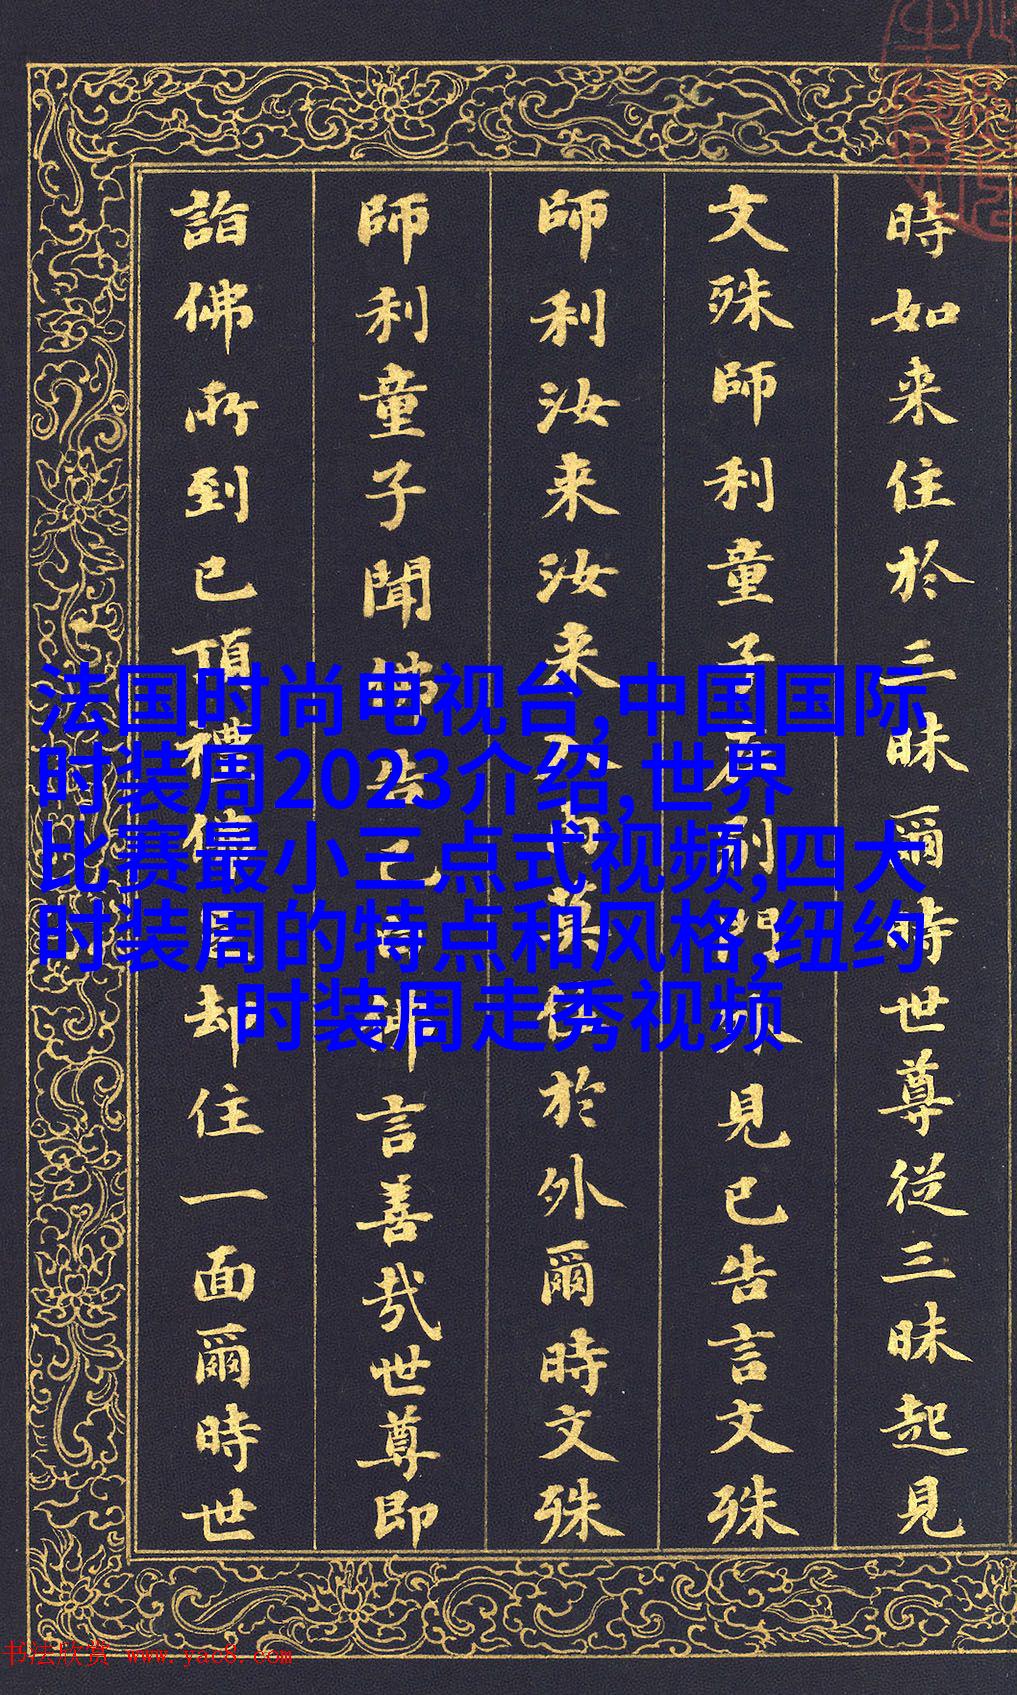 時如来住於三昧爾時世尊從三昧起見
文殊師利童子在別門外見已告言文殊
師利汝来汝来入内莫住於外爾時文殊
師利童子聞佛告已白佛言善哉世尊即
詣佛所到已頂禮佛足却住一面爾時世
法国时尚电视台,中国国际
时装周2023介绍,世界
比赛最小三点式视频,四大
时装周的特点和风格,纽约
时装周走秀视频
书法欣赏 www.yac8.com